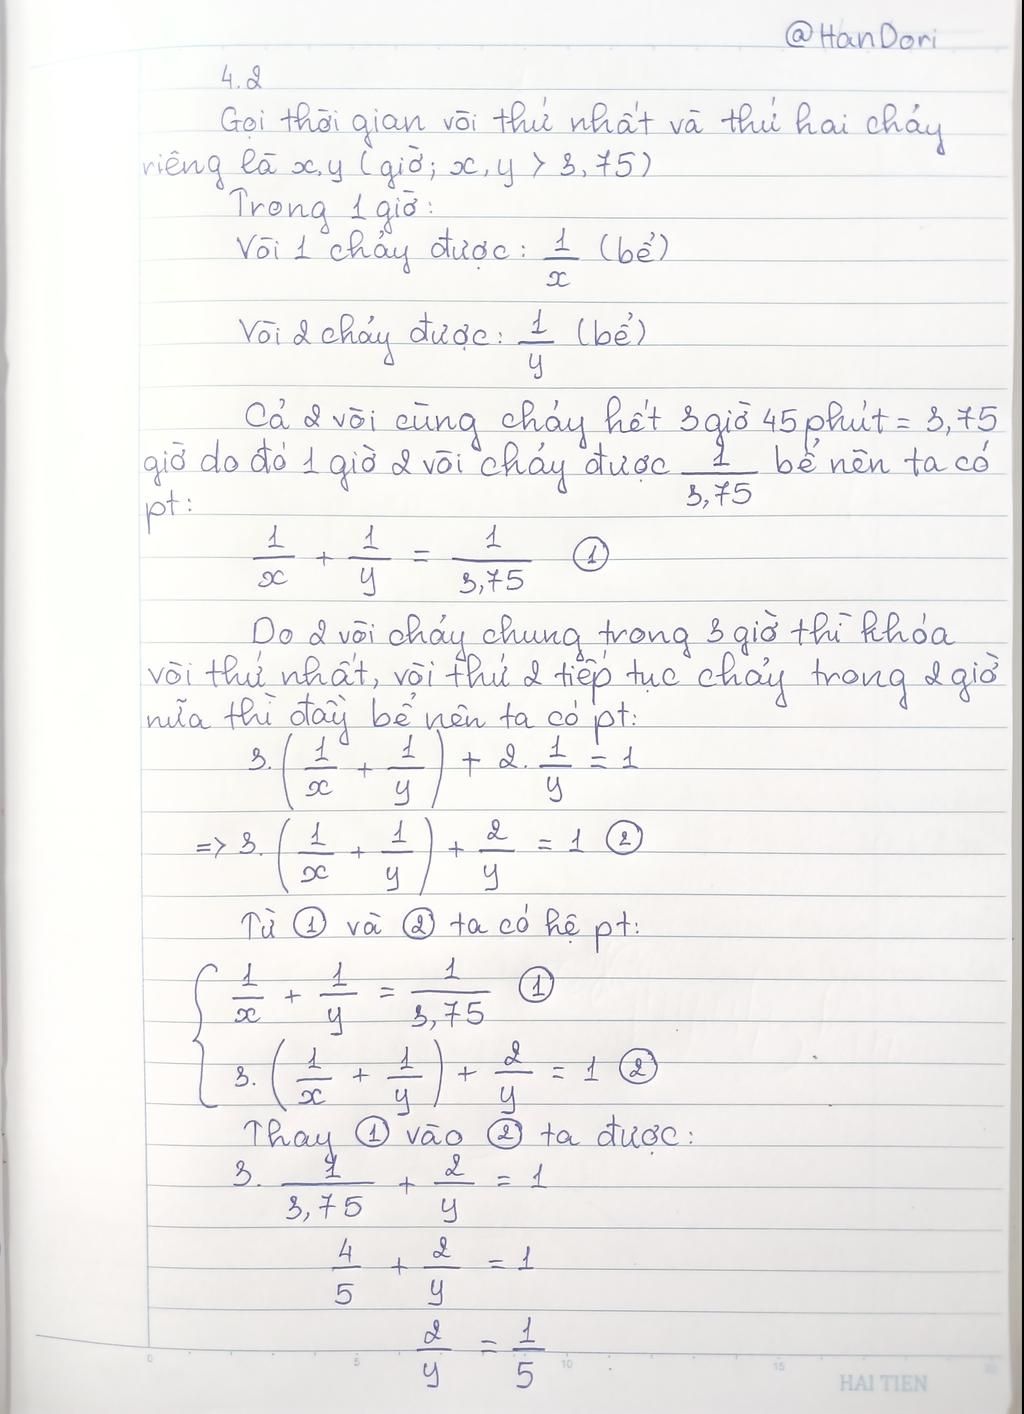 @HanDori
4.2
Gọi thời gian vòi thứ nhất và thứ hai chảy
riêng là x,y (giờ; x,y > 3,75)
Trong 1 giờ:
Vòi 1 chảy được: 1/x (bể)
Vòi 2 chảy được: 1/y (bể)
Cả 2 vòi cùng chảy hết 3 giờ 45 phút = 3,75
giờ do đó 1 giờ 2 vòi chảy được 1/3,75 bể nên ta có
pt:
1/x + 1/y = 1/3,75 ①
Do 2 vòi chảy chung trong 3 giờ thì khóa
vòi thứ nhất, vòi thứ 2 tiếp tục chảy trong 2 giờ
nữa thì đầy bể nên ta có pt:
3.(1/x + 1/y) + 2. 1/y = 1
=> 3.(1/x + 1/y) + 2/y = 1 ②
Từ ① và ② ta có hệ pt:
{ 1/x + 1/y = 1/3,75 ①
3.(1/x + 1/y) + 2/y = 1 ②
Thay ① vào ② ta được:
3. 1/3,75 + 2/y = 1
4/5 + 2/y = 1
2/y = 1/5
0 5 10 15 20
HAI TIEN